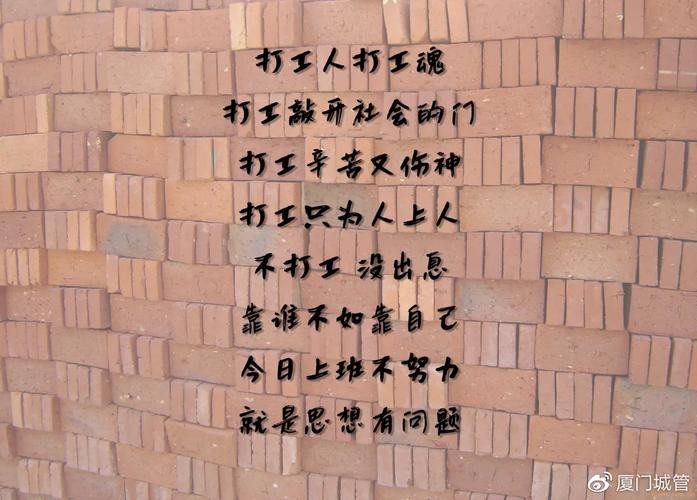 打工人打工魂
打工敲开社会的门
打工辛苦又伤神
打工只为人上人
不打工 没出息
靠谁不如靠自己
今日上班不努力
就是思想有问题
厦门城管